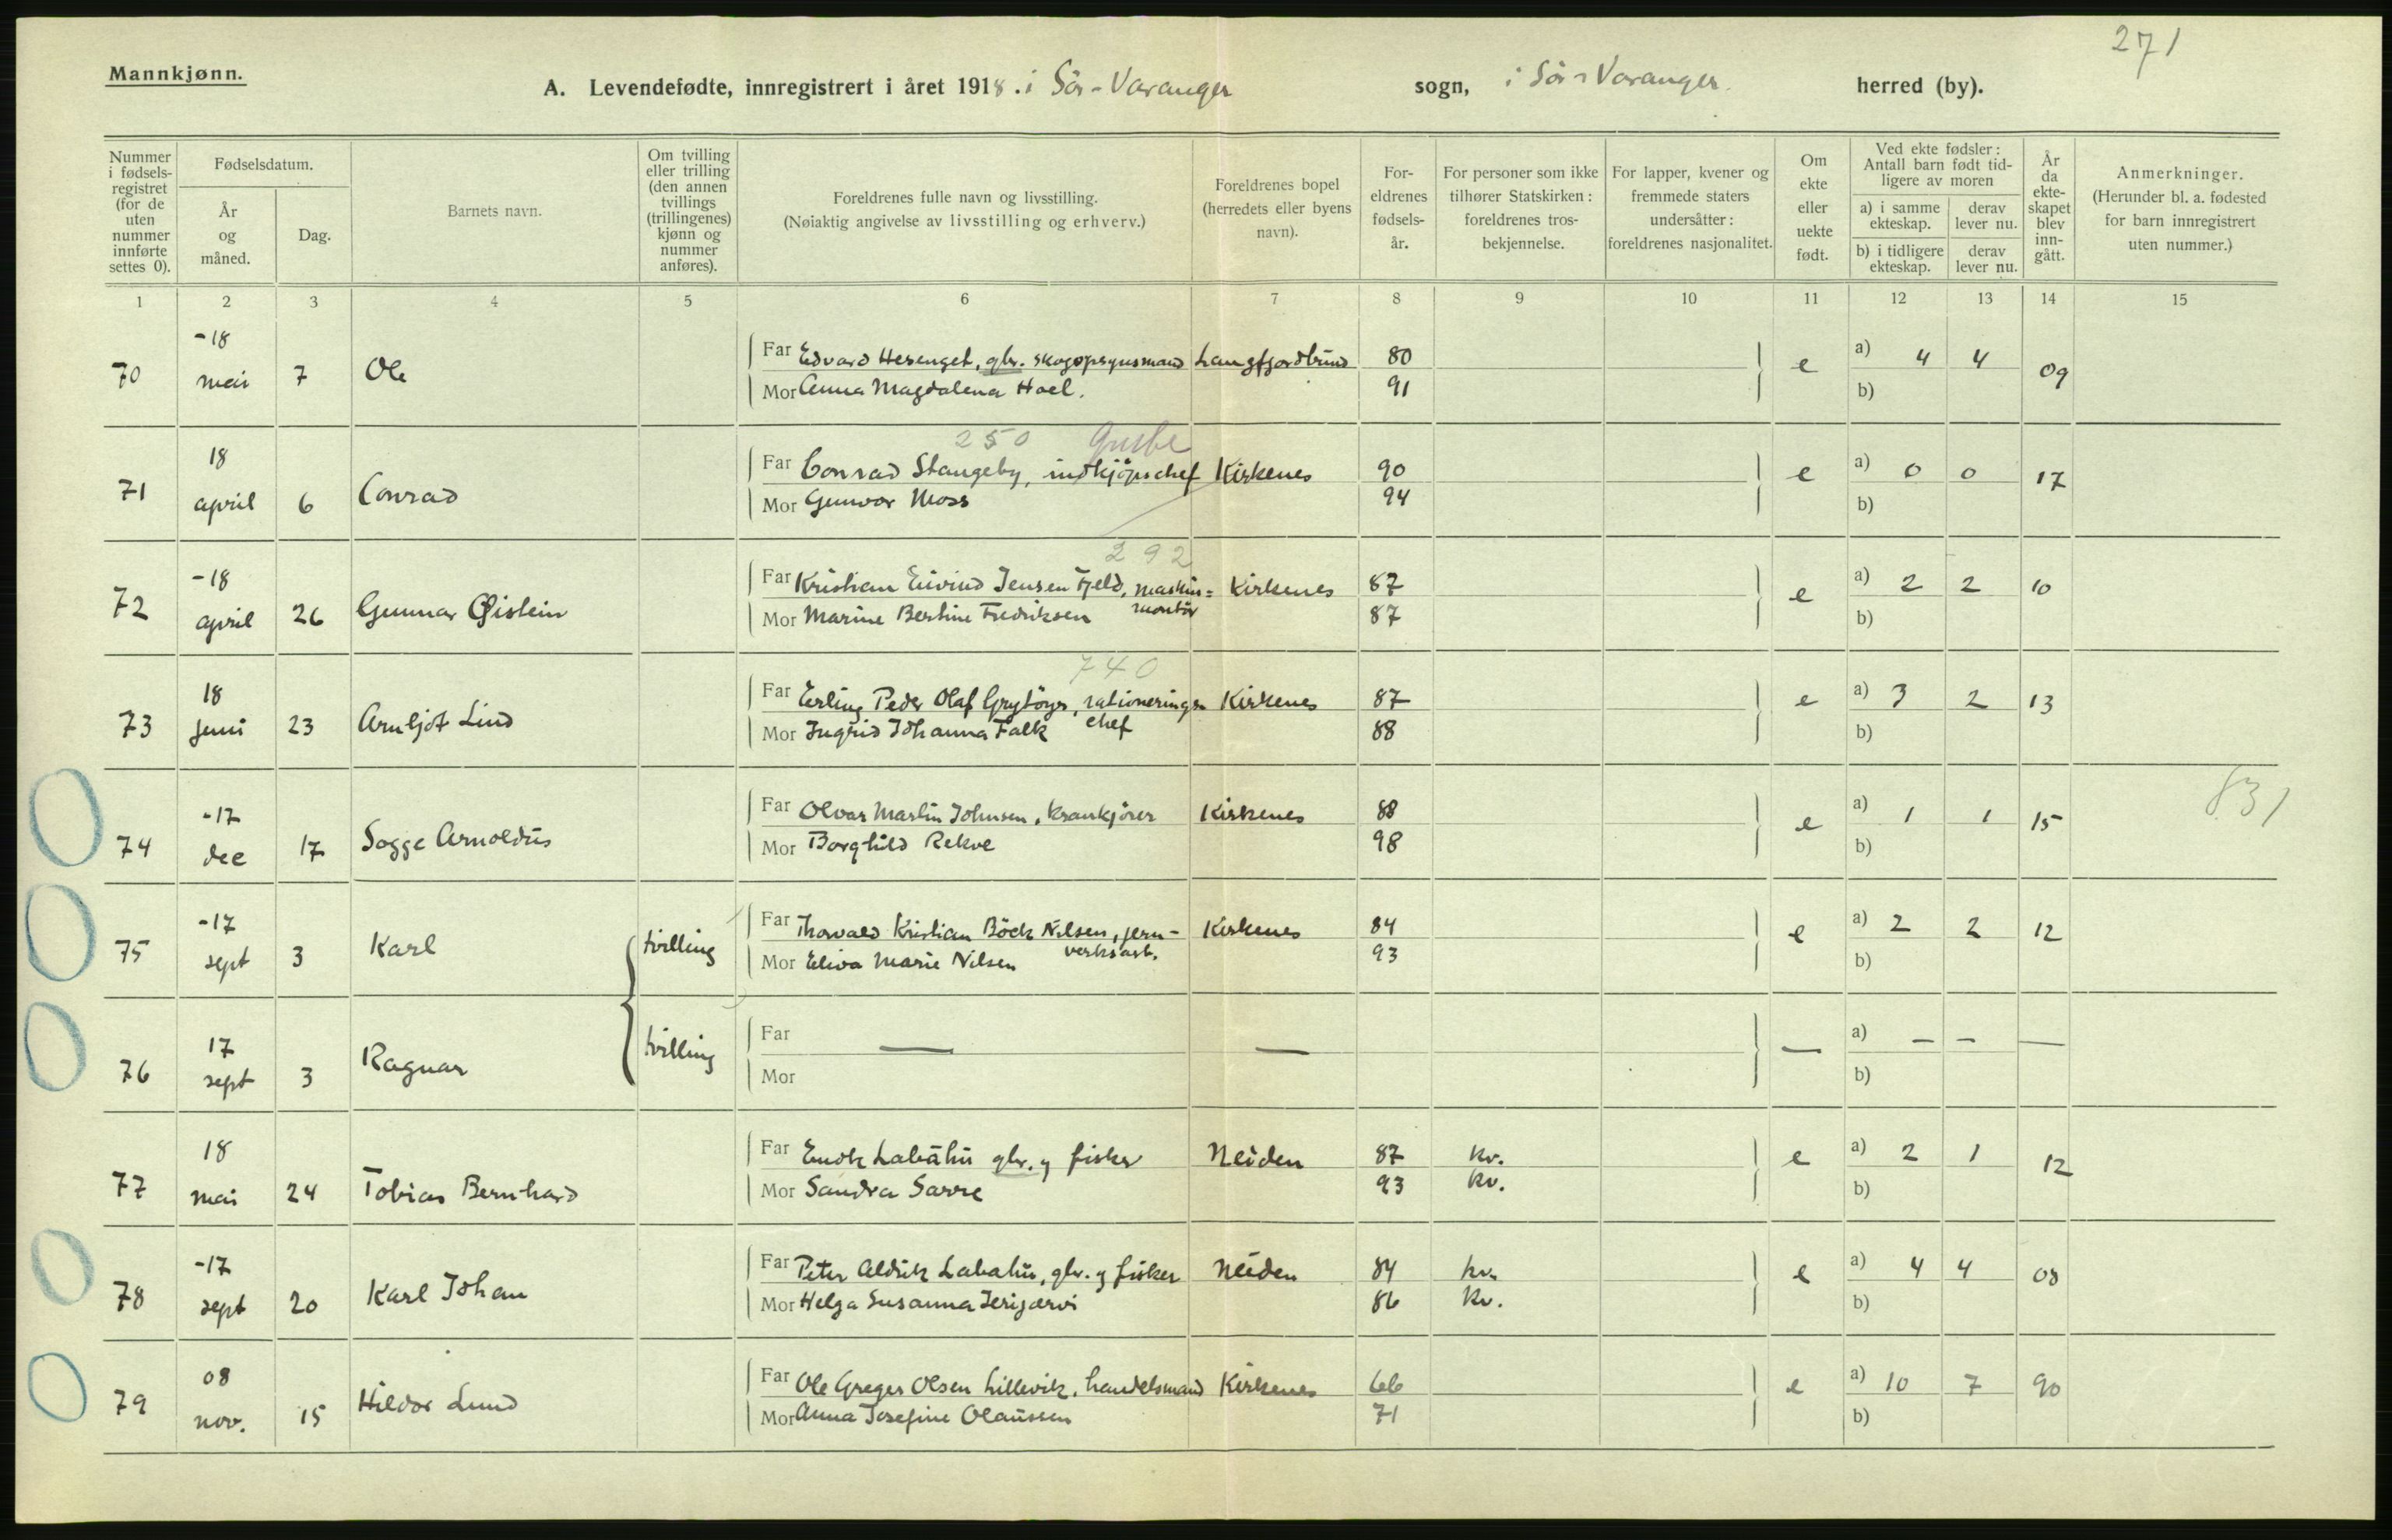 271
Mannkjønn.
A. Levendefødte, innregistrert i året 1918. i Sør-Varanger sogn, i Sør-Varanger herred (by).
Nummer i fødselsregistret (for de uten nummer innførte settes 0).
Fødselsdatum.
År og måned.
Dag.
Barnets navn.
Om tvilling eller trilling (den annen tvillings (trillingenes) kjønn og nummer anføres).
Foreldrenes fulle navn og livsstilling.
(Nøiaktig angivelse av livsstilling og erhverv.)
Foreldrenes bopel (herredets eller byens navn).
Foreldrenes fødselsår.
For personer som ikke tilhører Statskirken: foreldrenes trosbekjennelse.
For lapper, kvener og fremmede staters undersåtter: foreldrenes nasjonalitet.
Om ekte eller uekte født.
Ved ekte fødsler: Antall barn født tidligere av moren
a) i samme ekteskap. derav lever nu.
b) i tidligere ekteskap. derav lever nu.
År da ekteskapet blev inngått.
Anmerkninger.
(Herunder bl. a. fødested for barn innregistrert uten nummer.)
1 2 3 4 5 6 7 8 9 10 11 12 13 14 15
-18
70 mai 7 Ole
Far Edvard Hesenget, gbr. skogopsynsmand Langfjordbund 80 e a) 4 4 09
Mor Anna Magdalena Hoel. 91 b)
250
18
71 april 6 Conrad
Far Conrad Stangeby, indkjøpschef Kirkenes 90 e a) 0 0 17
Mor Gunvor Moss 94 b)
292
-18
72 april 26 Gunnar Øistein
Far Kristian Eivind Jensen Fjeld, maskin= Kirkenes 87 e a) 2 2 10
montør
Mor Marine Bertine Fredriksen 87 b)
740
18
73 juni 23 Arnljot Lind
Far Erling Peder Olaf Grytöyr, rationerings Kirkenes 87 e a) 3 2 13
chef
Mor Ingrid Johanna Falk 88 b)
831
-17
74 dec 17 Sogge Arnoldus
Far Olvar Martin Johnsen, krankjører Kirkenes 88 e a) 1 1 15
Mor Borghild Rekve 98 b)
-17
75 sept 3 Karl tvilling
Far Thorvald Kristian Böck Nilsen, jern- Kirkenes 84 e a) 2 2 12
verksarb.
Mor Eliva Marie Nilsen 93 b)
17
76 sept 3 Ragnar tvilling
Far — — — a) — — —
Mor b)
18
77 mai 24 Tobias Bernhard
Far Enok Labahü gbr. y fisker Neiden 87 kv. e a) 2 1 12
Mor Sandra Sarre 93 kv. b)
-17
78 sept 20 Karl Johan
Far Peter Aldrik Labahü, gbr. y fisker Neiden 84 kv. e a) 4 4 08
Mor Helga Susanna Jerijærvi 86 kv. b)
08
79 nov. 15 Hildor Lund
Far Ole Greger Olsen Lillevik, handelsmand Kirkenes 66 e a) 10 7 90
Mor Anna Josefine Olaussen 71 b)